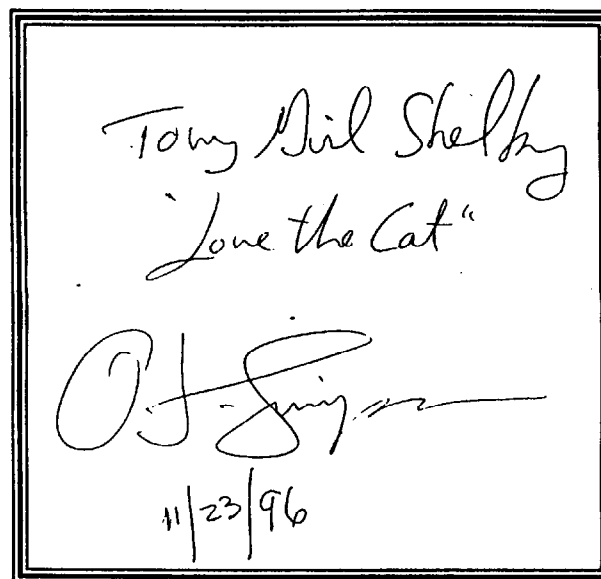 To my Girl Shelby
"Love the Cat"
O.J. Simpson
11/23/96